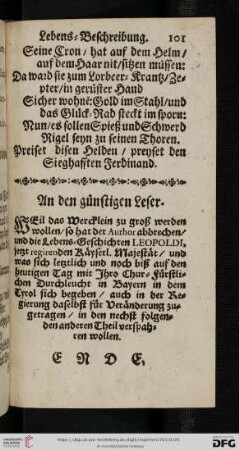 Lebens-Beschreibung. 101
Seine Cron / hat auf dem Helm /
auf dem Haar nit / sitzen müssen:
Da ward sie zum Lorbeer-Krantz / Ze-
pter / in gerüster Hand
Sicher wohnt: Gold im Stahl / und
das Glück-Rad steckt im sporn:
Nun / es sollen Spieß und Schwerd
Rigel seyn zu seinen Thoren.
Preiset disen Helden / preyset den
Sieghafften Ferdinand.
An den günstigen Leser.
WEil das Wercklein zu groß werden
wollen / so hat der Author abbrechen /
und die Lebens-Geschichten LEOPOLDI,
jetzt regirenden Käyserl. Majestät / und
was sich letztlich und noch biß auf den
heutigen Tag mit Ihro Chur-Fürstli-
chen Durchleucht in Bayern in dem
Tyrol sich begeben / auch in der Re-
gierung daselbst für Veränderung zu-
getragen / in den nechst folgen-
den anderen Theil verspah-
ren wollen.
E N D E.
DFG